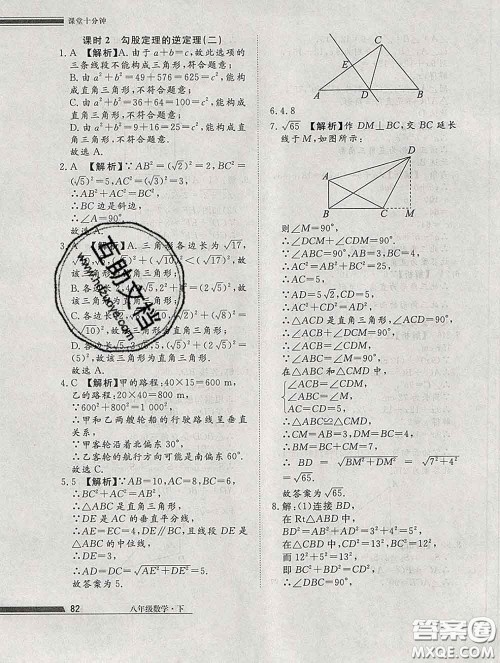 课堂十分钟
课时2 勾股定理的逆定理(二)
1. A 【解析】A. 由于a+b=c,故此选项的
三条线段不能构成三角形,符合题意;
B. 由a²+b²=49+576=625=c²,故能
构成直角三角形,不符合题意;
C. 由a²+b²=36+64=100=c²,故能
构成直角三角形,不符合题意;
D. 由a²+b²=9+16=25=c²,故能构成
直角三角形,不符合题意;
故选A.
2. A 【解析】∵AB²=(√2)²=2,BC²=
(√5)²=5,AC²=(√3)²=3,
∴AB²+AC²=BC²,
∴BC边是斜边,
∴∠A=90°,
故选A.
3. A 【解析】A. 三角形各边长为√17,
B. 各边长为
D. 各边长为√5,
(√5)²+(2√5)²=
5²,故该三角形为直角三角形.
故选A.
4. C 【解析】甲的路程:40×15=600 m,
乙的路程:20×40=800 m,
∵600²+800²=1 000²,
∴甲和乙两艘船的行驶路线呈垂直
关系,
∵甲客轮沿着北偏东30°,
∴乙客轮的航行方向可能是南偏东60°,
故选C.
5. 5 【解析】∵6²+8²=10²,
∴△ABC是直角三角形,
∵DE是AC的垂直平分线,
∴AE=EC=4,DE∥BC,且线段DE是
△ABC的中位线,
∴DE=3,
∴AD=DC=√(AE²+DE²)=5.
故答案为5.
C
E
A D B
6. 4.8
7. √65 【解析】作DM⊥BC,交BC延长
线于M,如图所示:
D
A
B C M
则∠M=90°,
∴∠DCM+∠CDM=90°,
∵∠ABC=90°,AB=3,BC=4,
∴AC²=AB²+BC²=25,
∴AC=5,
∵AD=5√2,CD=5,
∴AC²+CD²=AD²,
∴△ACD是直角三角形,∠ACD=90°,
∴∠ACB+∠DCM=90°,
∴∠ACB=∠CDM,
∵∠ABC=∠M=90°,
在△ABC和△CMD中,
{∠ACB=∠CDM
∠ABC=∠M
AC=CD,
∴△ABC≌△CMD,
∴CM=AB=3,DM=BC=4,
∴BM=BC+CM=7,
∴BD=√(BM²+DM²)=√(7²+4²)
=√65.
故答案为√65.
8. 解:(1)连接BD,
在Rt△ABD中,
BD²=AB²+AD²=3²+2²=13,
而12²+5²=13²,
即BC²+BD²=CD²,
∴△BCD
∴∠DBC=90°,
82
八年级数学·下
互助文档